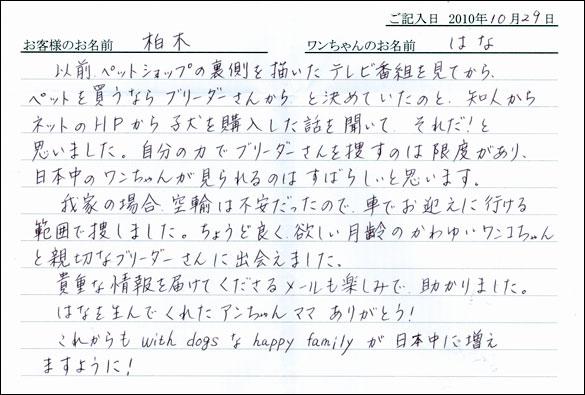 ご記入日 2010年10月29日
お客様のお名前 柏木 ワンちゃんのお名前 はな
以前、ペットショップの裏側を描いたテレビ番組を見てから、
ペットを買うなら ブリーダーさんから と決めていたのと、知人から
ネットのHPから子犬を購入した話を聞いて、それだ!と
思いました。自分の力でブリーダーさんを捜すのは限度があり、
日本中のワンちゃんが見られるのはすばらしいと思います。
我家の場合、空輸は不安だったので、車でお迎えに行ける
範囲で捜しました。ちょうど良く、欲しい月齢のかわゆいワンコちゃん
と親切なブリーダーさんに出会えました。
貴重な情報を届けてくださるメールも楽しみで、助かりました。
はなを生んでくれたアンちゃんママ ありがとう!
これからも with dogs な happy family が日本中に増え
ますように!